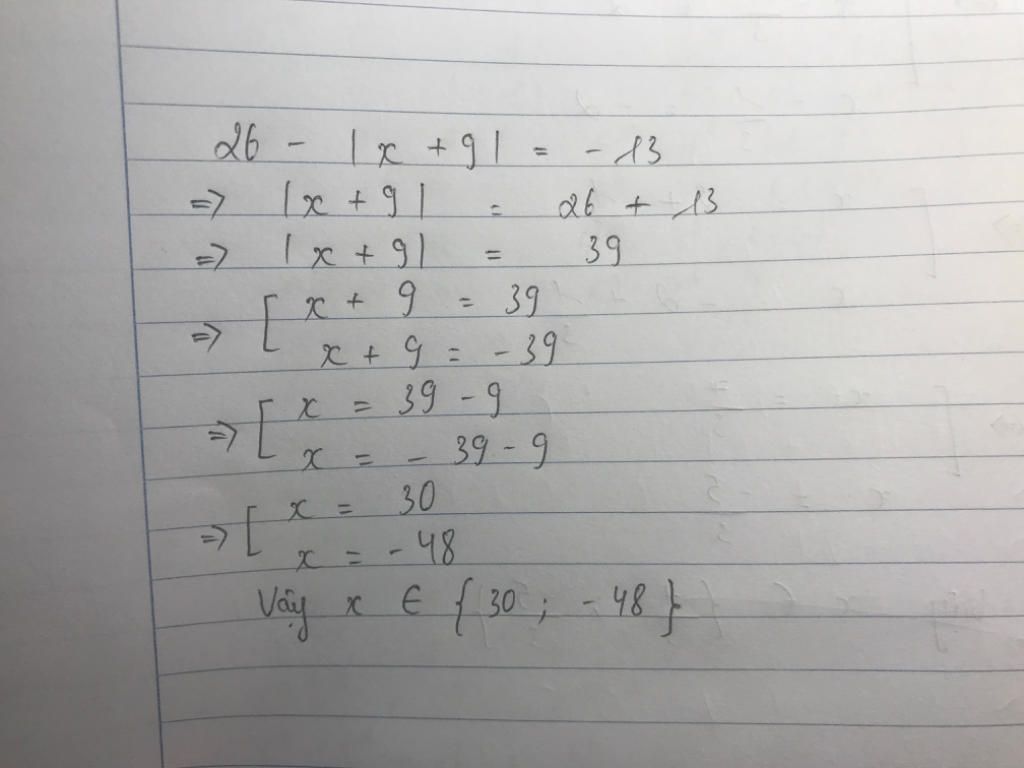 26 - |x + 9| = - 13
=> |x + 9| = 26 + 13
=> |x + 9| = 39
=> [ x + 9 = 39
x + 9 = - 39
=> [ x = 39 - 9
x = - 39 - 9
=> [ x = 30
x = - 48
Vậy x ∈ { 30 ; - 48 }